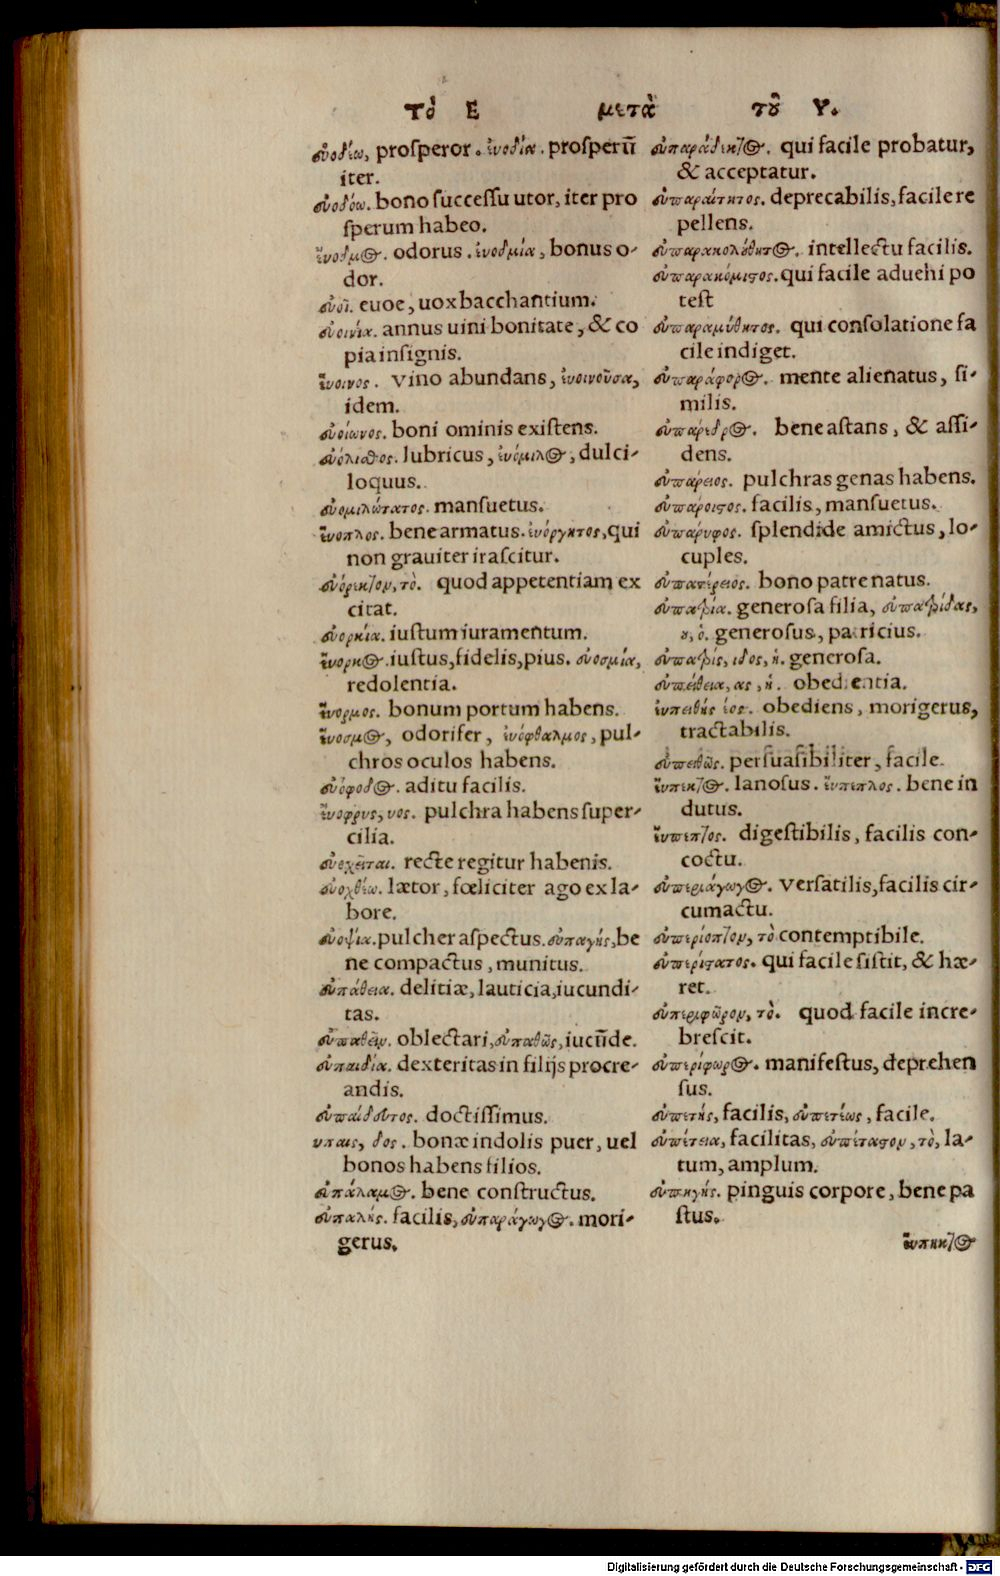 Τὸ Ε μετὰ τοῦ Υ.
εὐοδέω, prosperor. εὐοδία. prosperũ
iter.
εὐοδόω. bono successu utor, iter pro
sperum habeo.
εὔοδμος. odorus. εὐοδμία, bonus o-
dor.
εὐοῖ. euoe, uox bacchantium.
εὐοινία. annus uini bonitate, & co
pia insignis.
εὔοινος. vino abundans, εὐοινοῦσα,
idem.
εὐοίωνος. boni ominis existens.
εὐόλισθος. lubricus, εὐόμιλος, dulci-
loquus.
εὐομιλώτατος. mansuetus.
εὔοπλος. bene armatus. εὐόργητος, qui
non grauiter irascitur.
εὐόρεκτον, τὸ. quod appetentiam ex
citat.
εὐορκία. iustum iuramentum.
εὔορκος. iustus, fidelis, pius. εὐοσμία,
redolentia.
εὔορμος. bonum portum habens.
εὔοσμος, odorifer, εὐόφθαλμος, pul-
chros oculos habens.
εὐόφοδος. aditu facilis.
εὔοφρυς, υος. pulchra habens super-
cilia.
εὐοχεῖται. recte regitur habenis.
εὐοχθέω. lætor, fœliciter ago ex la-
bore.
εὐοψία. pulcher aspectus. εὐπαγής, be
ne compactus, munitus.
εὐπάθεια. delitiæ, lauticia, iucundi-
tas.
εὐπαθεῖν. oblectari, εὐπαθῶς, iucũde.
εὐπαιδία. dexteritas in filijs procre-
andis.
εὐπαίδευτος. doctissimus.
υπαις, δος. bonæ indolis puer, uel
bonos habens filios.
εὐπάλαμος. bene constructus.
εὐπαλής. facilis, εὐπαράγωγος. mori-
gerus.
εὐπαράδεκτος. qui facile probatur,
& acceptatur.
εὐπαραίτητος. deprecabilis, facile re
pellens.
εὐπαρακολούθητος. intellectu facilis.
εὐπαρακόμιστος. qui facile aduehi po
test
εὐπαραμύθητος. qui consolatione fa
cile indiget.
εὐπαράφορος. mente alienatus, si-
milis.
εὐπάρεδρος. bene astans, & assi-
dens.
εὐπάρειος. pulchras genas habens.
εὐπάροιστος. facilis, mansuetus.
εὐπάρυφος. splendide amictus, lo-
cuples.
εὐπατέρειος. bono patre natus.
εὐπατρία. generosa filia, εὐπατρίδας,
ου, ὁ. generosus, patricius.
εὐπατρίς, ιδος, ἡ. generosa.
εὐπείθεια, ας, ἡ. obedientia.
εὐπειθής έος. obediens, morigerus,
tractabilis.
εὐπειθῶς. persuasibiliter, facile.
εὔπεκτος. lanosus. εὔπεπλος. bene in
dutus.
εὔπεπτος. digestibilis, facilis con-
coctu.
εὐπεριάγωγος. versatilis, facilis cir-
cumactu.
εὐπερίοπτον, τὸ contemptibile.
εὐπερίστατος. qui facile sistit, & hæ-
ret.
εὐπεριφῶρον, τὸ. quod facile incre-
brescit.
εὐπερίφωρος. manifestus, deprehen
sus.
εὐπετής, facilis, εὐπετέως, facile.
εὐπέτεια, facilitas, εὐπέταστον, τὸ, la-
tum, amplum.
εὐπηγής. pinguis corpore, bene pa
stus.
εὔπηκτος
Digitalisierung gefördert durch die Deutsche Forschungsgemeinschaft - DFG